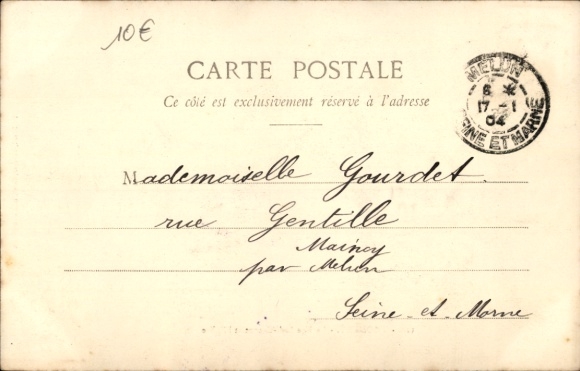 10€
CARTE POSTALE
Ce côté est exclusivement réservé à l'adresse
MELUN
6 *
17 - 1
04
SEINE ET MARNE
Mademoiselle Gourdet.
rue Gentille
Maincy
par Melun
Seine-et-Marne